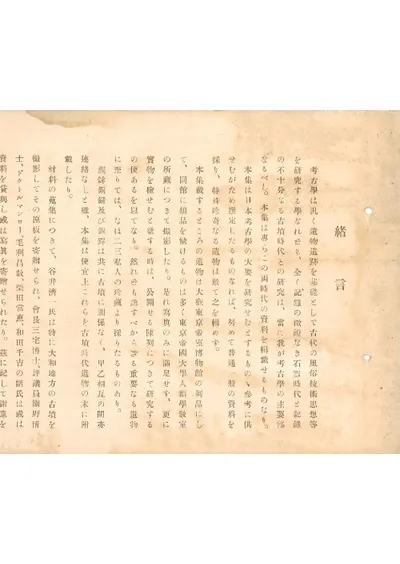 緒言
考古學は汎く遺物遺跡を基礎として古代の風俗技術思想等
を研究する學なれども、全く記錄の徵證なき石器時代と記錄
の不十分なる古墳時代との研究は、當に我が考古學の主要部
なるべし。本集は專らこの兩時代の資料を輯載せるものなり。
本集は日本考古學の大要を研究せむとするものゝ參考に供
せむがため撰定したるものなれば、努めて普通一般の資料を
採り、特殊珍奇なる遺物は敢て之を輯めず。
本集載するところの遺物は大抵東京帝室博物館の列品にし
て、同館に類品を缺けるものは多く東京帝國大學人類學敎室
の所藏につきて撮影したり。是れ寫眞のみに滿足せず、更に
實物を檢せむと欲する時は、公開せる陳列について研究する
の便あるを思てなり。然れども逸すべからざる重要なる遺物
に至りては、なほ二三私人の珍藏より採りたるものあり。
銅鉾銅劔及び銅鐸は共に古墳に關係なく、甲乙相互の間亦
連絡なしと雖、本集は便宜上これらを古墳時代遺物の末に附
載したり。
材料の蒐集につきて、谷井濟一氏は特に大和地方の古墳を
撮影してその原板を寄贈せられ、會長三宅博士、評議員關野博
士、ドクトルマンロー、毛利昌敎、柴田常惠、和田千吉の諸氏は或は
資料を貸與し或は寫眞を寄贈せられたり。茲に記して謝意を